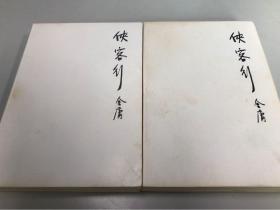 俠客行
金庸
俠客行
金庸